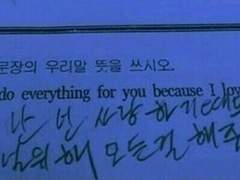 문장의 우리말 뜻을 쓰시오.
do everything for you because I lov
난 널 사랑하기 때문
널 위해 모든걸 해주